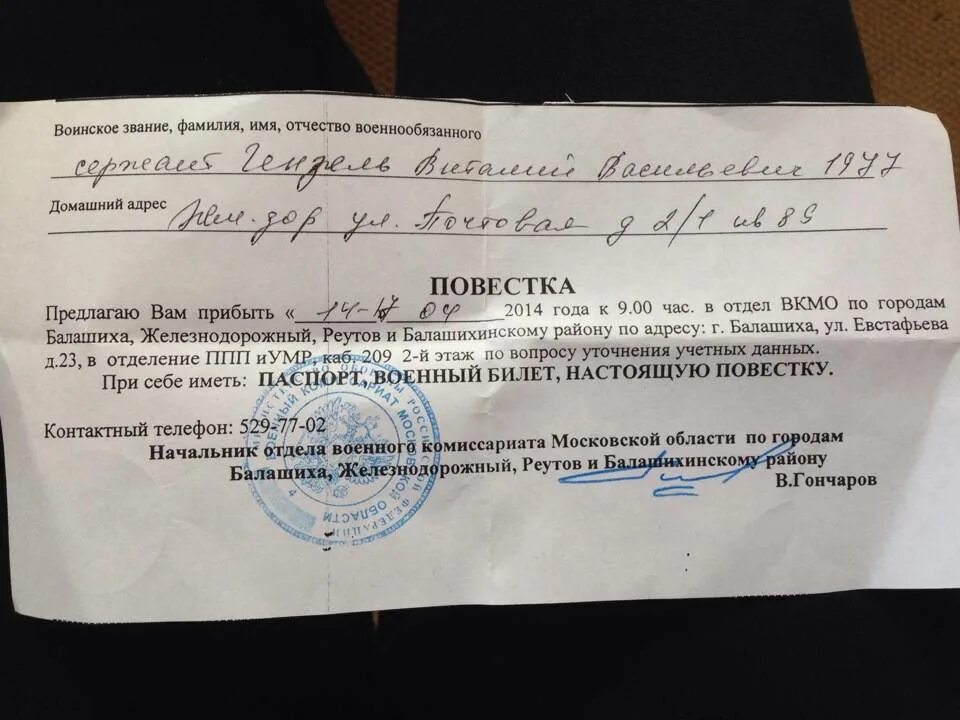 Воинское звание, фамилия, имя, отчество военнообязанного
сержант Гендель Виталий Васильевич 1977
Домашний адрес Жел.дор ул. Почтовая д 2/1 кв 89
ПОВЕСТКА
Предлагаю Вам прибыть « 14-17 04 2014 года к 9.00 час. в отдел ВКМО по городам
Балашиха, Железнодорожный, Реутов и Балашихинскому району по адресу: г. Балашиха, ул. Евстафьева
д.23, в отделение ППП иУМР, каб. 209 2-й этаж по вопросу уточнения учетных данных.
При себе иметь: ПАСПОРТ, ВОЕННЫЙ БИЛЕТ, НАСТОЯЩУЮ ПОВЕСТКУ.
Контактный телефон: 529-77-02
Начальник отдела военного комиссариата Московской области по городам
Балашиха, Железнодорожный, Реутов и Балашихинскому району
В.Гончаров
МИНИСТЕРСТВО ОБОРОНЫ РОССИЙСКОЙ ФЕДЕРАЦИИ
ВОЕННЫЙ КОМИССАРИАТ МОСКОВСКОЙ ОБЛАСТИ
4